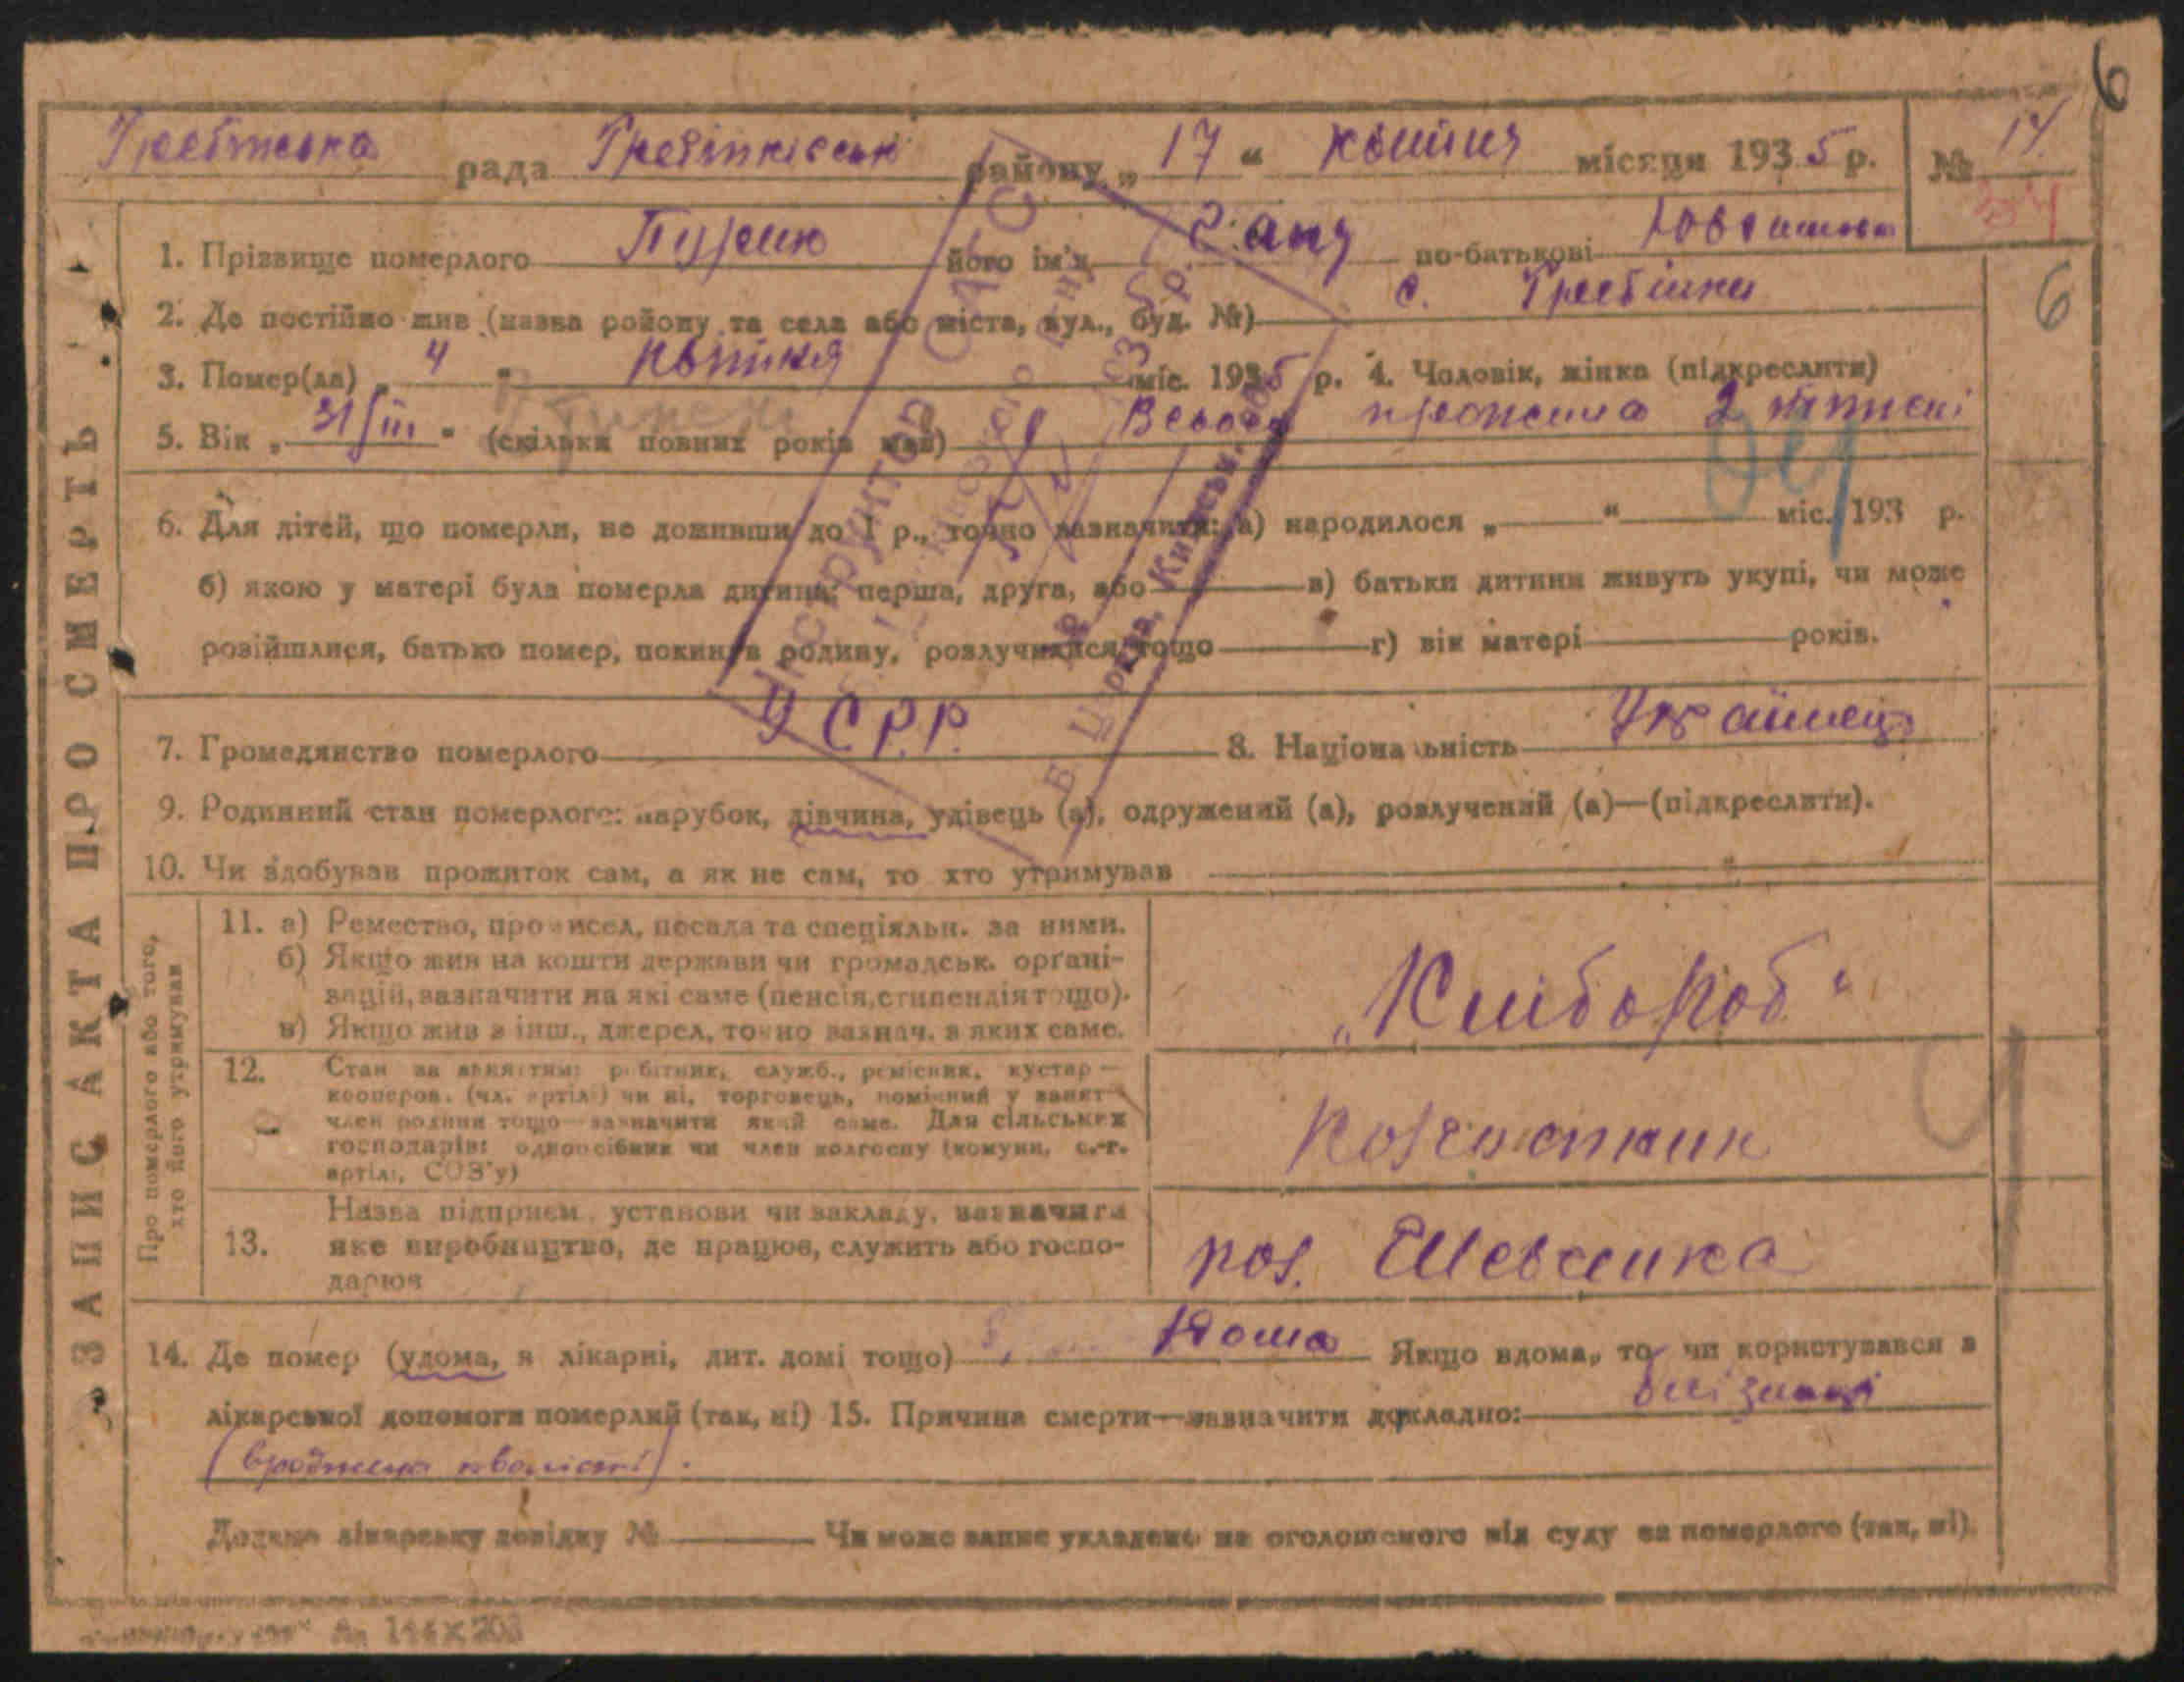 6
Гребінська рада Гребінківськ району „ 17 “ квітня місяця 193 5 р. № 14
34
1. Прізвище померлого його ім'я по-батькові
2. Де постійно жив (назва району та села або міста, вул., буд. №) с. Гребінки
6
3. Помер(ла) „ 4 " квітня міс. 1935 р. 4. Чоловік, жінка (підкреслити)
5. Вік „ 31/III " (скільки повних років мав) Всього прожила 2 тижні
6. Для дітей, що померли, не доживши до 1 р., точно зазначити: а) народилося „ “ міс. 193 р.
б) якою у матері була померла дитина: перша, друга, або в) батьки дитини живуть укупі, чи може
розійшлися, батько помер, покинув родину, розлучилися тощо г) вік матері років.
7. Громадянство померлого УСРР. 8. Національність Українець
9. Родинний стан померлого: парубок, дівчина, удівець (а), одружений (а), розлучений (а)—(підкреслити).
10. Чи здобував прожиток сам, а як не сам, то хто утримував
ЗАПИС АКТА ПРО СМЕРТЬ
Про померлого або того, хто його утримував
11. а) Ремество, промисел, посада та спеціяльн. за ними.
б) Якщо жив на кошти держави чи громадськ. орґані-
зацій, зазначити на які саме (пенсія, стипендія тощо).
в) Якщо жив з інш., джерел, точно зазнач. з яких саме.
„Хлібороб“
12. Стан за заняттям: робітник, служб., ремісник, кустар —
кооперов. (чл. артілі) чи ні, торговець, помічний у занят
член родини тощо—зазначити який саме. Для сільських
господарів: одноосібник чи член колгоспу (комуни, с.-г.
артілі, СОЗ'у)
Колгоспник
13. Назва підприєм., установи чи закладу, зазначити
яке виробництво, де працює, служить або госпо-
дарює
кол. Шевченка
14. Де помер (удома, в лікарні, дит. домі тощо) Дома Якщо вдома, то чи користувався з
лікарської допомоги померлий (так, ні) 15. Причина смерти—зазначити докладно:
(вроджена кволість).
Додано лікарську довідку № Чи може запис укладено на оголошеного від суду за померлого (так, ні).